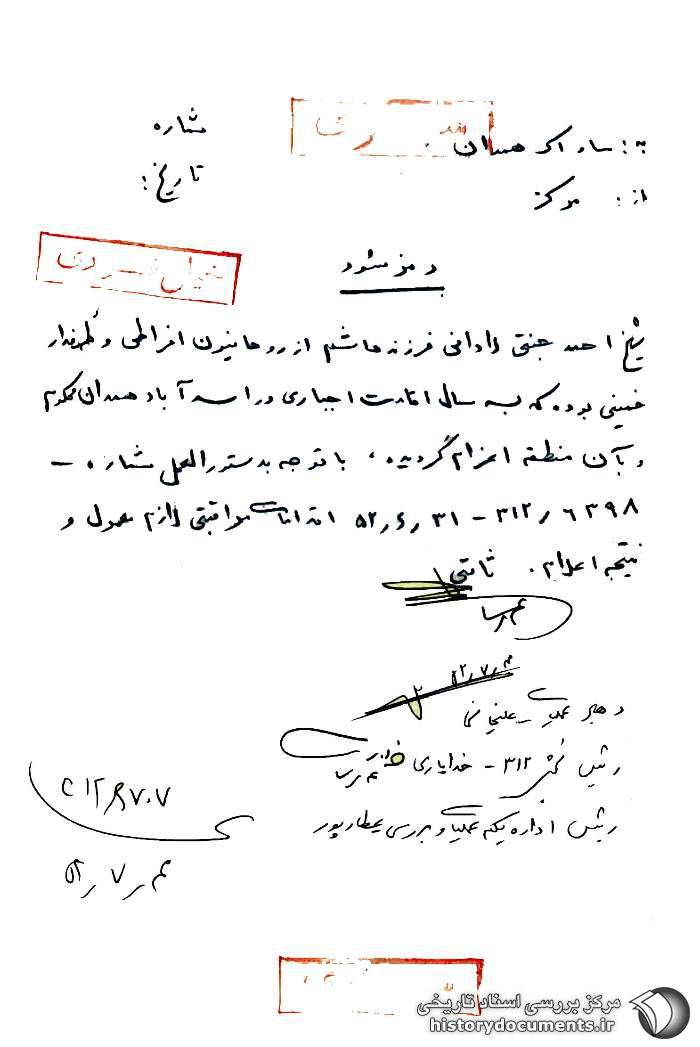 به: ساواک همدان
شماره
از: مرکز
تاریخ:
رمز شود
خیلی فوری
شیخ احمد جنتی لادانی فرزند هاشم از روحانیون افراطی و طرفدار
خمینی بوده که بسه سال اقامت اجباری در اسدآباد همدان محکوم
و بآن منطقه اعزام گردیده، با توجه بدستورالعمل شماره -
۳۱۲/۶۳۹۸ - ۵۲/۶/۳۱ اقدامات مراقبتی لازم معمول و
نتیجه اعلام. ثابتی
رهبر عملیات
۵۲/۷/۳
رئیس بخش ۳۱۲ - خدایاری
رئیس اداره یکم عملیات و بررسی عطارپور
۵۲/۷/۳
مرکز بررسی اسناد تاریخی
historydocuments.ir